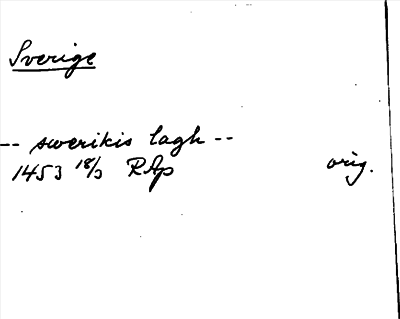 Sverige
-- swerikis lagh --
1453 18/3 RAp orig.